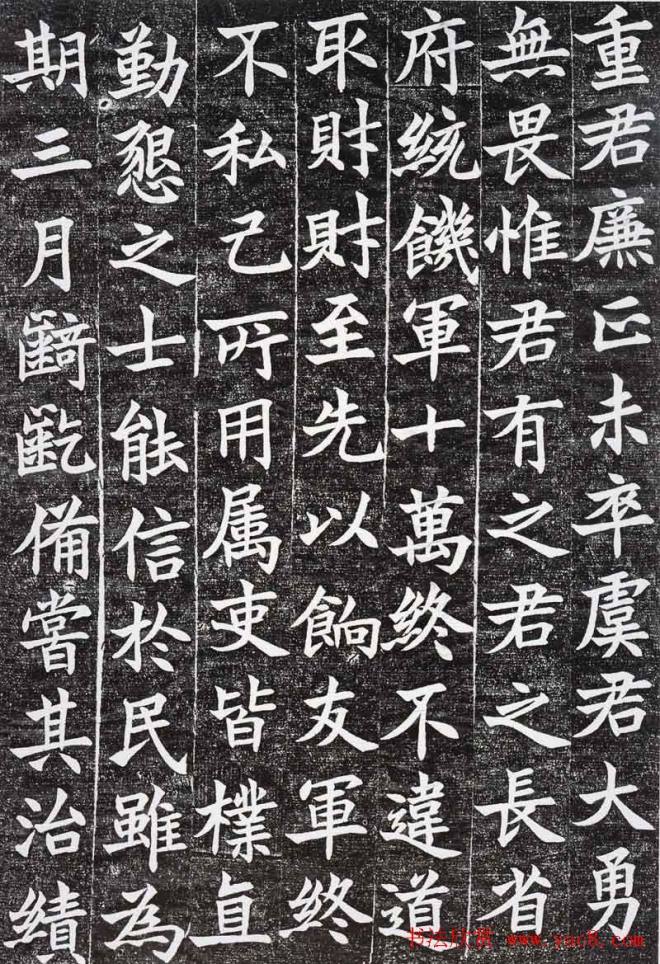 重君廉正未卒虞君大勇
無畏惟君有之君之長省
府統饑軍十萬終不違道
取財財至先以餉友軍終
不私己所用属吏皆樸直
勤懇之士能信於民雖為
期三月齮齕備嘗其治績
书法欣赏 www.yac8.com